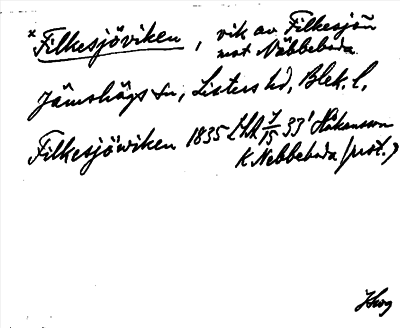 *Filkesjöviken, vik av Filkesjön
mot Näbbeboda.
Jämshögs sn, Listers hd, Blek. l.
Filkesjöwiken 1835 LHA 7/15 33' Håkansson
K Nebbeboda (prot.)